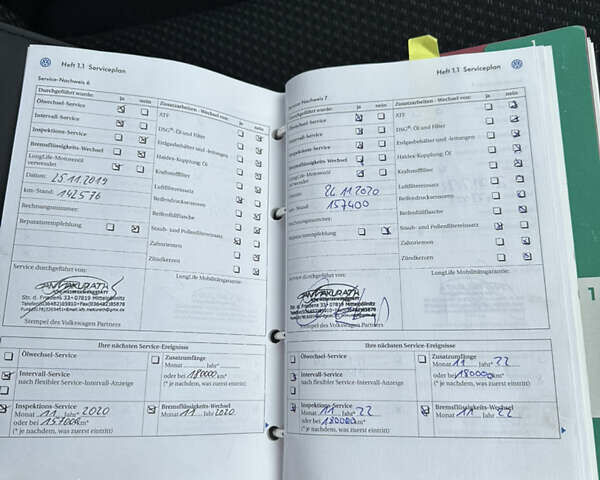 Heft 1.1 Serviceplan
Service-Nachweis 6
Durchgeführt wurde: ja nein
Ölwechsel-Service
Intervall-Service
Inspektions-Service
Bremsflüssigkeits-Wechsel
LongLife-Motorenöl
verwendet
Datum: 25.11.2019
km-Stand: 142576
Rechnungsnummer:
Reparaturempfehlung
Zusatzarbeiten - Wechsel von: ja nein
ATF
DSG®-Öl und Filter
Erdgasbehälter und -leitungen
Haldex-Kupplung: Öl
Kraftstofffilter
Luftfiltereinsatz
Reifendruckseonsoren
Reifenfüllflasche
Staub- und Pollenfiltereinsatz
Zahnriemen
Zündkerzen
Service durchgeführt von:
LongLife Mobilitätsgarantie:
Str. d. Friedens 33•07819 Mittelpöllnitz
Stempel des Volkswagen Partners
Ihre nächsten Service-Ereignisse
Ölwechsel-Service
Intervall-Service
nach flexibler Service-Intervall-Anzeige
Inspektions-Service
Monat 11 Jahr* 2020
oder bei 157000 km*
(* je nachdem, was zuerst eintritt)
Zusatzumfänge
Monat Jahr*
oder bei 180000 km*
(* je nachdem, was zuerst eintritt)
Bremsflüssigkeits-Wechsel
Monat 11 Jahr 2020
Heft 1.1 Serviceplan
Service-Nachweis 7
Durchgeführt wurde: ja nein
Ölwechsel-Service
Intervall-Service
Inspektions-Service
Bremsflüssigkeits-Wechsel
LongLife-Motorenöl
verwendet
24.11.2020
km-Stand: 157400
Rechnungsnummer:
Reparaturempfehlung
Zusatzarbeiten - Wechsel von: ja nein
ATF
DSG®-Öl und Filter
Erdgasbehälter und -leitungen
Haldex-Kupplung: Öl
Kraftstofffilter
Luftfiltereinsatz
Reifendrucksensoren
Reifenfüllflasche
Staub- und Pollenfiltereinsatz
Zahnriemen
Zündkerzen
Service durchgeführt von:
LongLife Mobilitätsgarantie:
Str. d. Friedens 33•07819 Mittelpöllnitz
Stempel des Volkswagen Partners
Ihre nächsten Service-Ereignisse
Ölwechsel-Service
Intervall-Service
nach flexibler Service-Intervall-Anzeige
Inspektions-Service
Monat 11 Jahr* 22
oder bei 180000 km*
(* je nachdem, was zuerst eintritt)
Zusatzumfänge
Monat 11 Jahr* 22
oder bei 180000 km*
(* je nachdem, was zuerst eintritt)
Bremsflüssigkeits-Wechsel
Monat 11 Jahr 22
1